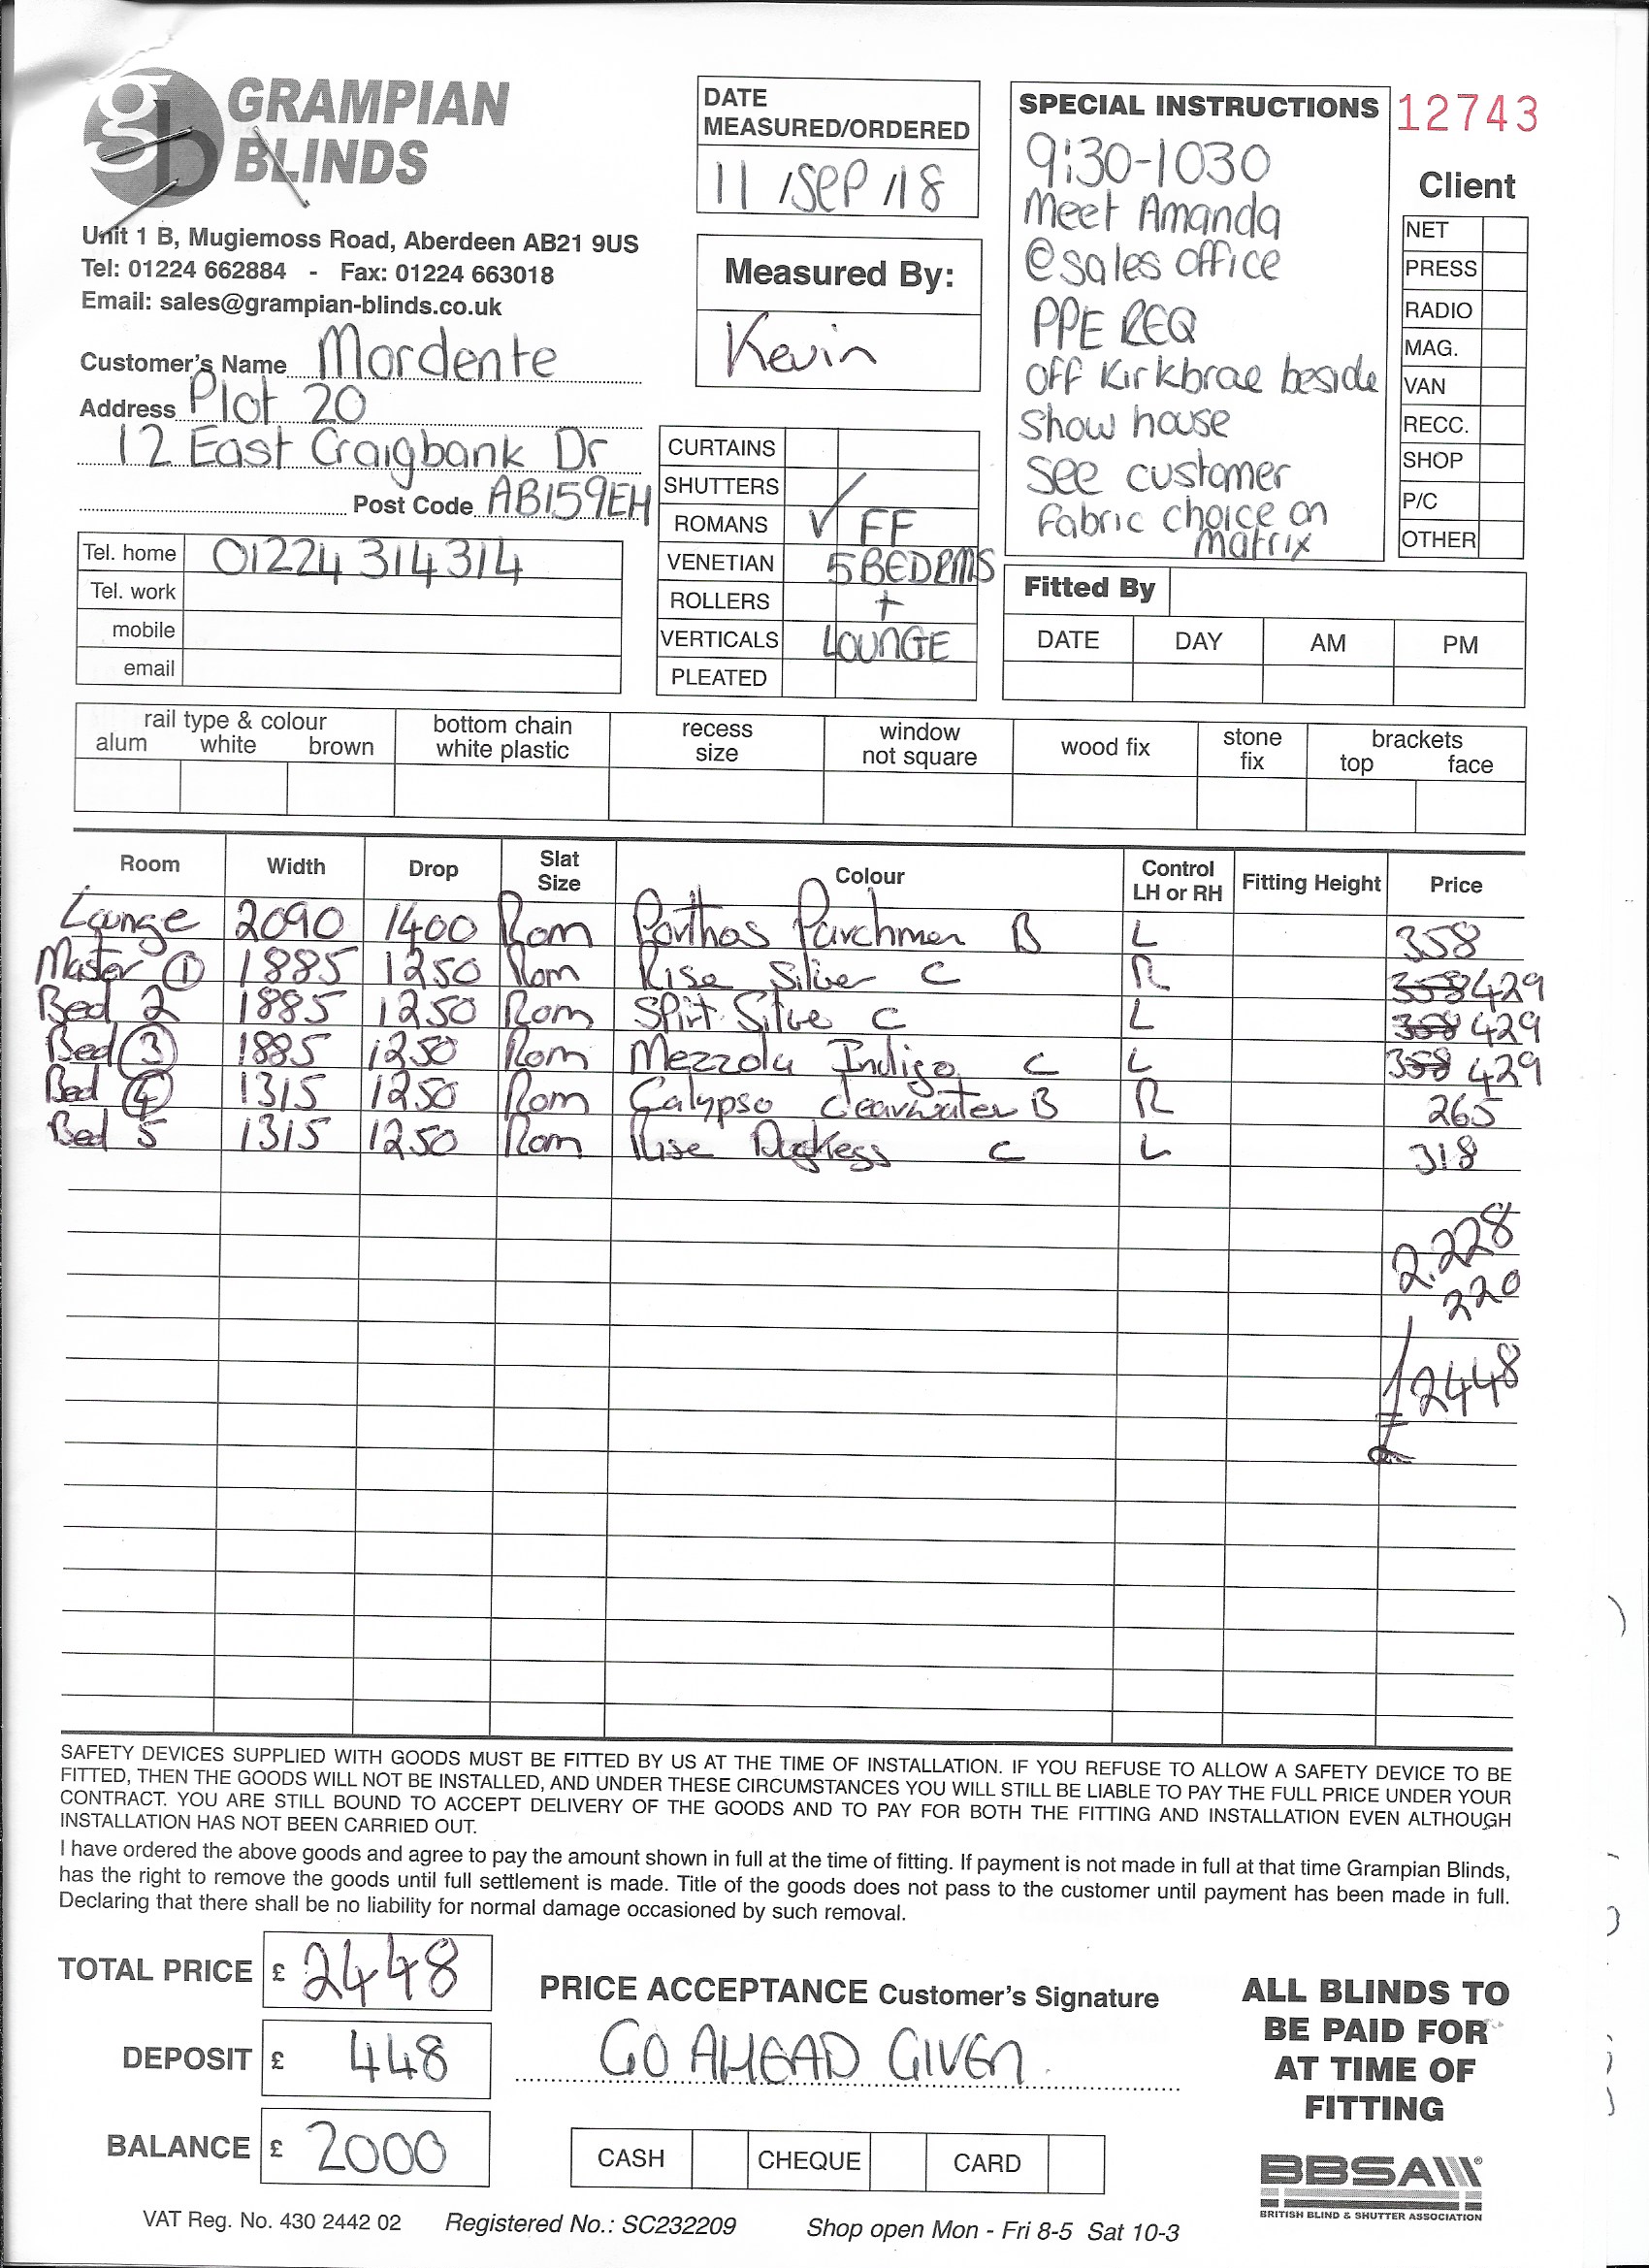 GRAMPIAN
BLINDS
Unit 1 B, Mugiemoss Road, Aberdeen AB21 9US
Tel: 01224 662884 - Fax: 01224 663018
Email: sales@grampian-blinds.co.uk
Customer's Name Mordente
Address Plot 20
12 East Craigbank Dr
Post Code AB159EH
Tel. home 01224 314314
Tel. work
mobile
email
DATE
MEASURED/ORDERED
11 /SEP /18
Measured By:
Kevin
CURTAINS
SHUTTERS
ROMANS ✓ FF
VENETIAN 5 BEDRMS
ROLLERS +
VERTICALS LOUNGE
PLEATED
SPECIAL INSTRUCTIONS
9:30-1030
Meet Amanda
@ sales office
PPE REQ
off Kirkbrae beside
show house
see customer
fabric choice on
matrix
12743
Client
NET
PRESS
RADIO
MAG.
VAN
RECC.
SHOP
P/C
OTHER
Fitted By
DATE DAY AM PM
rail type & colour
alum white brown
bottom chain
white plastic
recess
size
window
not square
wood fix
stone
fix
brackets
top face
Room Width Drop Slat Size Colour Control LH or RH Fitting Height Price
Lounge 2090 1400 Rom Porthos Parchmen B L 358
Master 1 1885 1250 Rom Rise Silver C R 358 429
Bed 2 1885 1250 Rom Spirt Silve C L 429
Bed 3 1885 1250 Rom Mezzola Indigo C L 358 429
Bed 4 1315 1250 Rom Calypso clearwater B R 265
Bed 5 1315 1250 Rom Rise C L 318
2.228
220
£2448
SAFETY DEVICES SUPPLIED WITH GOODS MUST BE FITTED BY US AT THE TIME OF INSTALLATION. IF YOU REFUSE TO ALLOW A SAFETY DEVICE TO BE
FITTED, THEN THE GOODS WILL NOT BE INSTALLED, AND UNDER THESE CIRCUMSTANCES YOU WILL STILL BE LIABLE TO PAY THE FULL PRICE UNDER YOUR
CONTRACT. YOU ARE STILL BOUND TO ACCEPT DELIVERY OF THE GOODS AND TO PAY FOR BOTH THE FITTING AND INSTALLATION EVEN ALTHOUGH
INSTALLATION HAS NOT BEEN CARRIED OUT.
I have ordered the above goods and agree to pay the amount shown in full at the time of fitting. If payment is not made in full at that time Grampian Blinds,
has the right to remove the goods until full settlement is made. Title of the goods does not pass to the customer until payment has been made in full.
Declaring that there shall be no liability for normal damage occasioned by such removal.
TOTAL PRICE £ 2448
DEPOSIT £ 448
BALANCE £ 2000
PRICE ACCEPTANCE Customer's Signature
GO AHEAD GIVEN
CASH CHEQUE CARD
ALL BLINDS TO
BE PAID FOR
AT TIME OF
FITTING
BBSA
BRITISH BLIND & SHUTTER ASSOCIATION
VAT Reg. No. 430 2442 02 Registered No.: SC232209 Shop open Mon - Fri 8-5 Sat 10-3